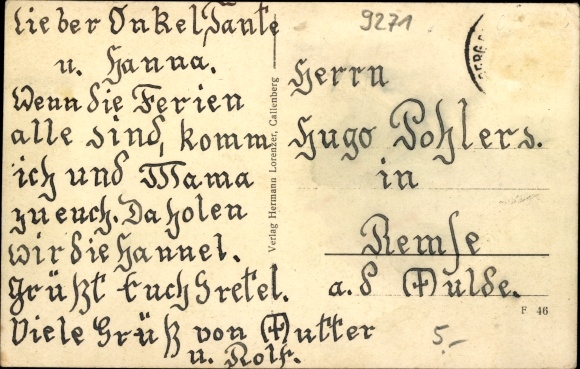 Lieber Onkel, Tante
u. Hanna.
Wenn die Ferien
alle sind, komm
ich und Mama
zu euch. Da holen
wir die Hannel.
Grüßt Euch Gretel.
Viele Grüß von Mutter
u. Rolf.
9271
Herrn
Hugo Pohlers.
in
Remse
a. d Mulde.
F 46
5,-
Verlag Hermann Lorenzer, Callenberg